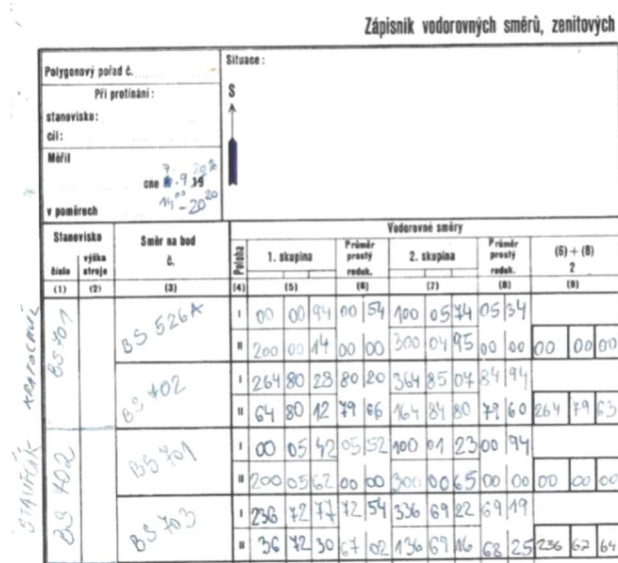 Zápisník vodorovných směrů, zenitových
Polygonový pořad č.
Situace:
Při protínání:
stanovisko:
cíl:
S
Měřil
7. 2020
dne .9.19
14 00 - 20 20
v poměrech
Stanovisko
Směr na bod č.
Poloha
Vodorovné směry
číslo
výška stroje
1. skupina
Průměr prostý reduk.
2. skupina
Průměr prostý reduk.
(6) + (8)
2
(1) (2) (3) (4) (5) (6) (7) (8) (9)
BS 701
BS 526A
I 00 00 94 00 54 100 05 74 05 34
II 200 00 14 00 00 300 04 95 00 00 00 00 00
BS 702
I 264 80 28 80 20 364 85 07 84 94
II 64 80 12 79 66 164 84 80 79 60 264 79 63
BS 702
BS 701
I 00 05 42 05 52 100 01 23 00 94
II 200 05 62 00 00 300 00 65 00 00 00 00 00
BS 703
I 236 72 77 72 54 336 69 22 69 19
II 36 72 30 67 02 136 69 16 68 25 236 67 64